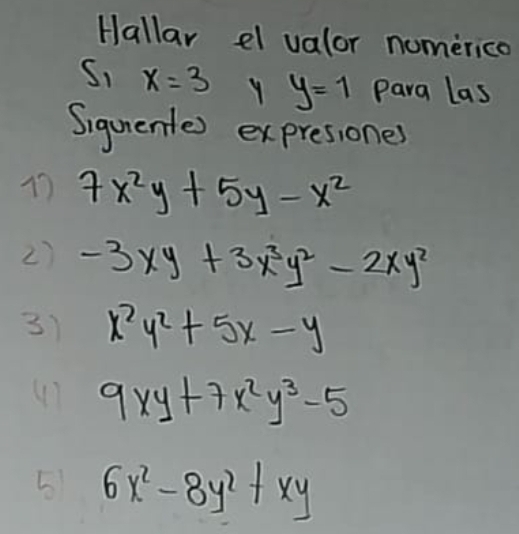 Hallar el valor numérico
Si x=3 y y=1 para las
Siguientes expresiones
1) 7x²y + 5y - x²
2) -3xy + 3x³y² - 2xy²
3) x²y² + 5x - y
4) 9xy + 7x²y³ - 5
5) 6x² - 8y² + xy